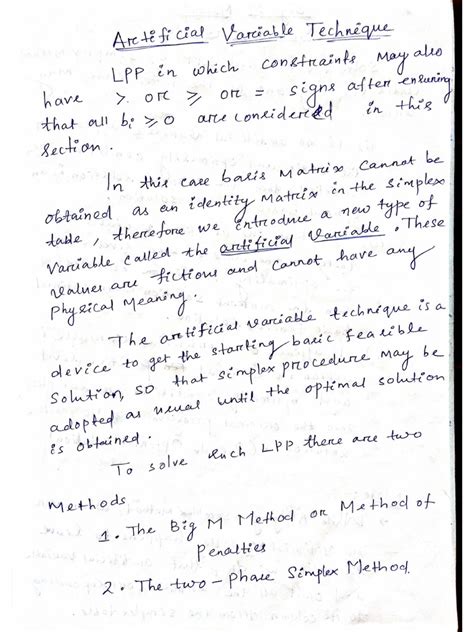 Artificial Variable Technique
LPP in which constraints may also
have > or ≥ or = signs after ensuring
that all bi ≥ 0 are considered in this
section.
In this case basis matrix cannot be
obtained as an identity matrix in the simplex
table, therefore we introduce a new type of
variable called the artificial variable. These
values are fictious and cannot have any
physical meaning.
The artificial variable technique is a
device to get the starting basic feasible
solution, so that simplex procedure may be
adopted as usual until the optimal solution
is obtained.
To solve such LPP there are two
methods
1. The Big M Method or Method of
Penalties
2. The two-Phase Simplex Method.